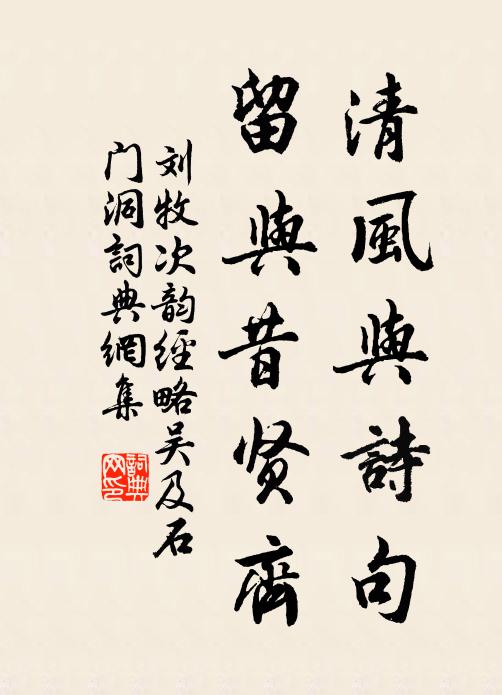 清風與詩句
留與昔贤齊
刘牧次韵經略吴及石
门洞詞典網集
詞典网印